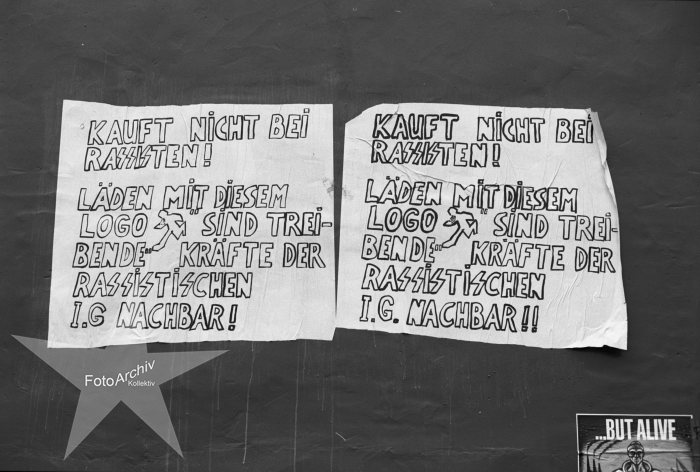 KAUFT NICHT BEI
RASSISTEN!
LÄDEN MIT DIESEM
LOGO " SIND TREI-
BENDE " KRÄFTE DER
RASSISTISCHEN
I.G NACHBAR!
KAUFT NICHT BEI
RASSISTEN!
LÄDEN MIT DIESEM
LOGO " SIND TREI-
BENDE " KRÄFTE DER
RASSISTISCHEN
I.G. NACHBAR!!
FotoArchiv
Kollektiv
...BUT ALIVE